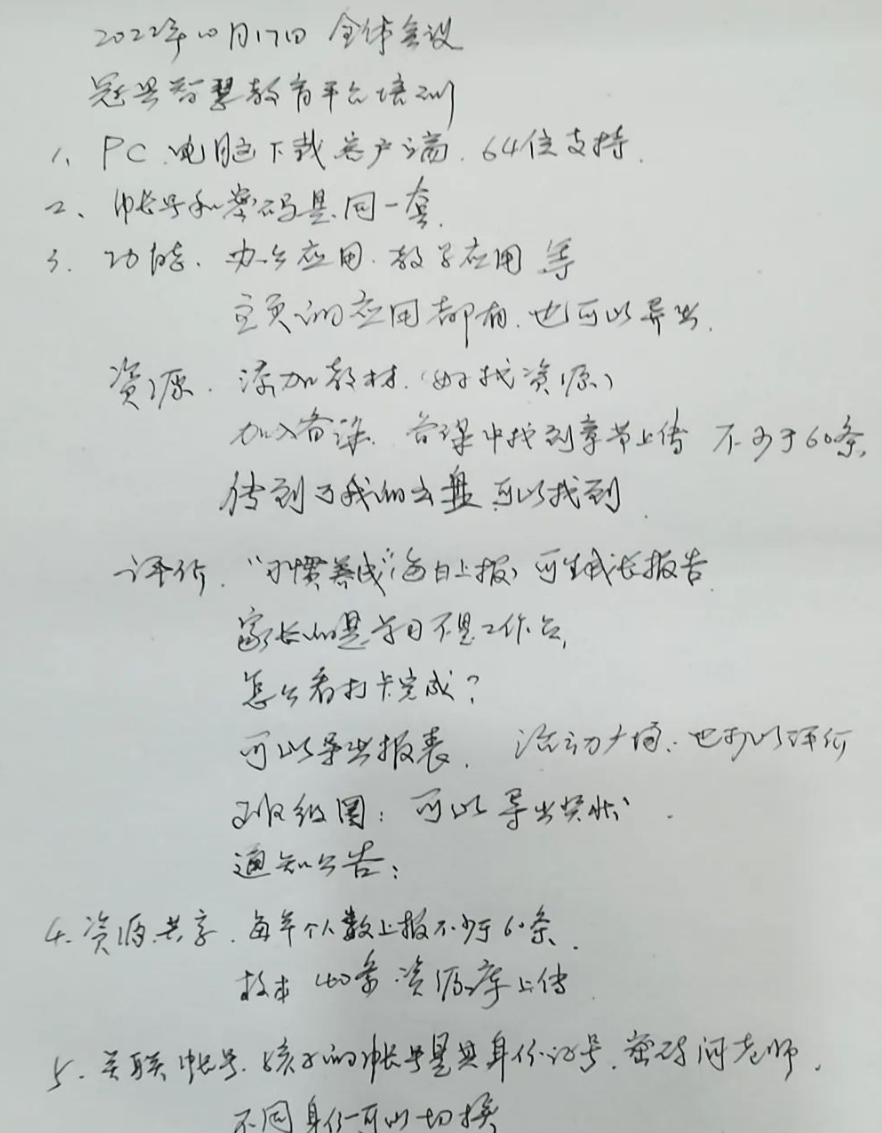 2022年10月17日 全体会议
冠县智慧教育平台培训
1、PC 电脑下载客户端. 64位支持.
2、帐号和密码是同一套.
3. 功能. 办公应用. 教学应用 等
主页的应用都有. 也可以导出.
资源. 添加教材.(好找资源)
加入备课. 备课中找到章节上传 不少于60条,
传到了我的云盘 可以找到.
评价. “习惯养成”(每日上报) 可生成长报告.
家长的是 不是工作台,
怎么看打卡完成?
可以导出报表. 活动广场. 也可以评价
班级圈: 可以导出奖状.
通知公告:
4. 资源共享. 每年个人数上报不少于60条.
校本 40条 资源库上传.
5. 关联帐号. 孩子的帐号是其身份证号. 密码问老师.
不同身份可以切换